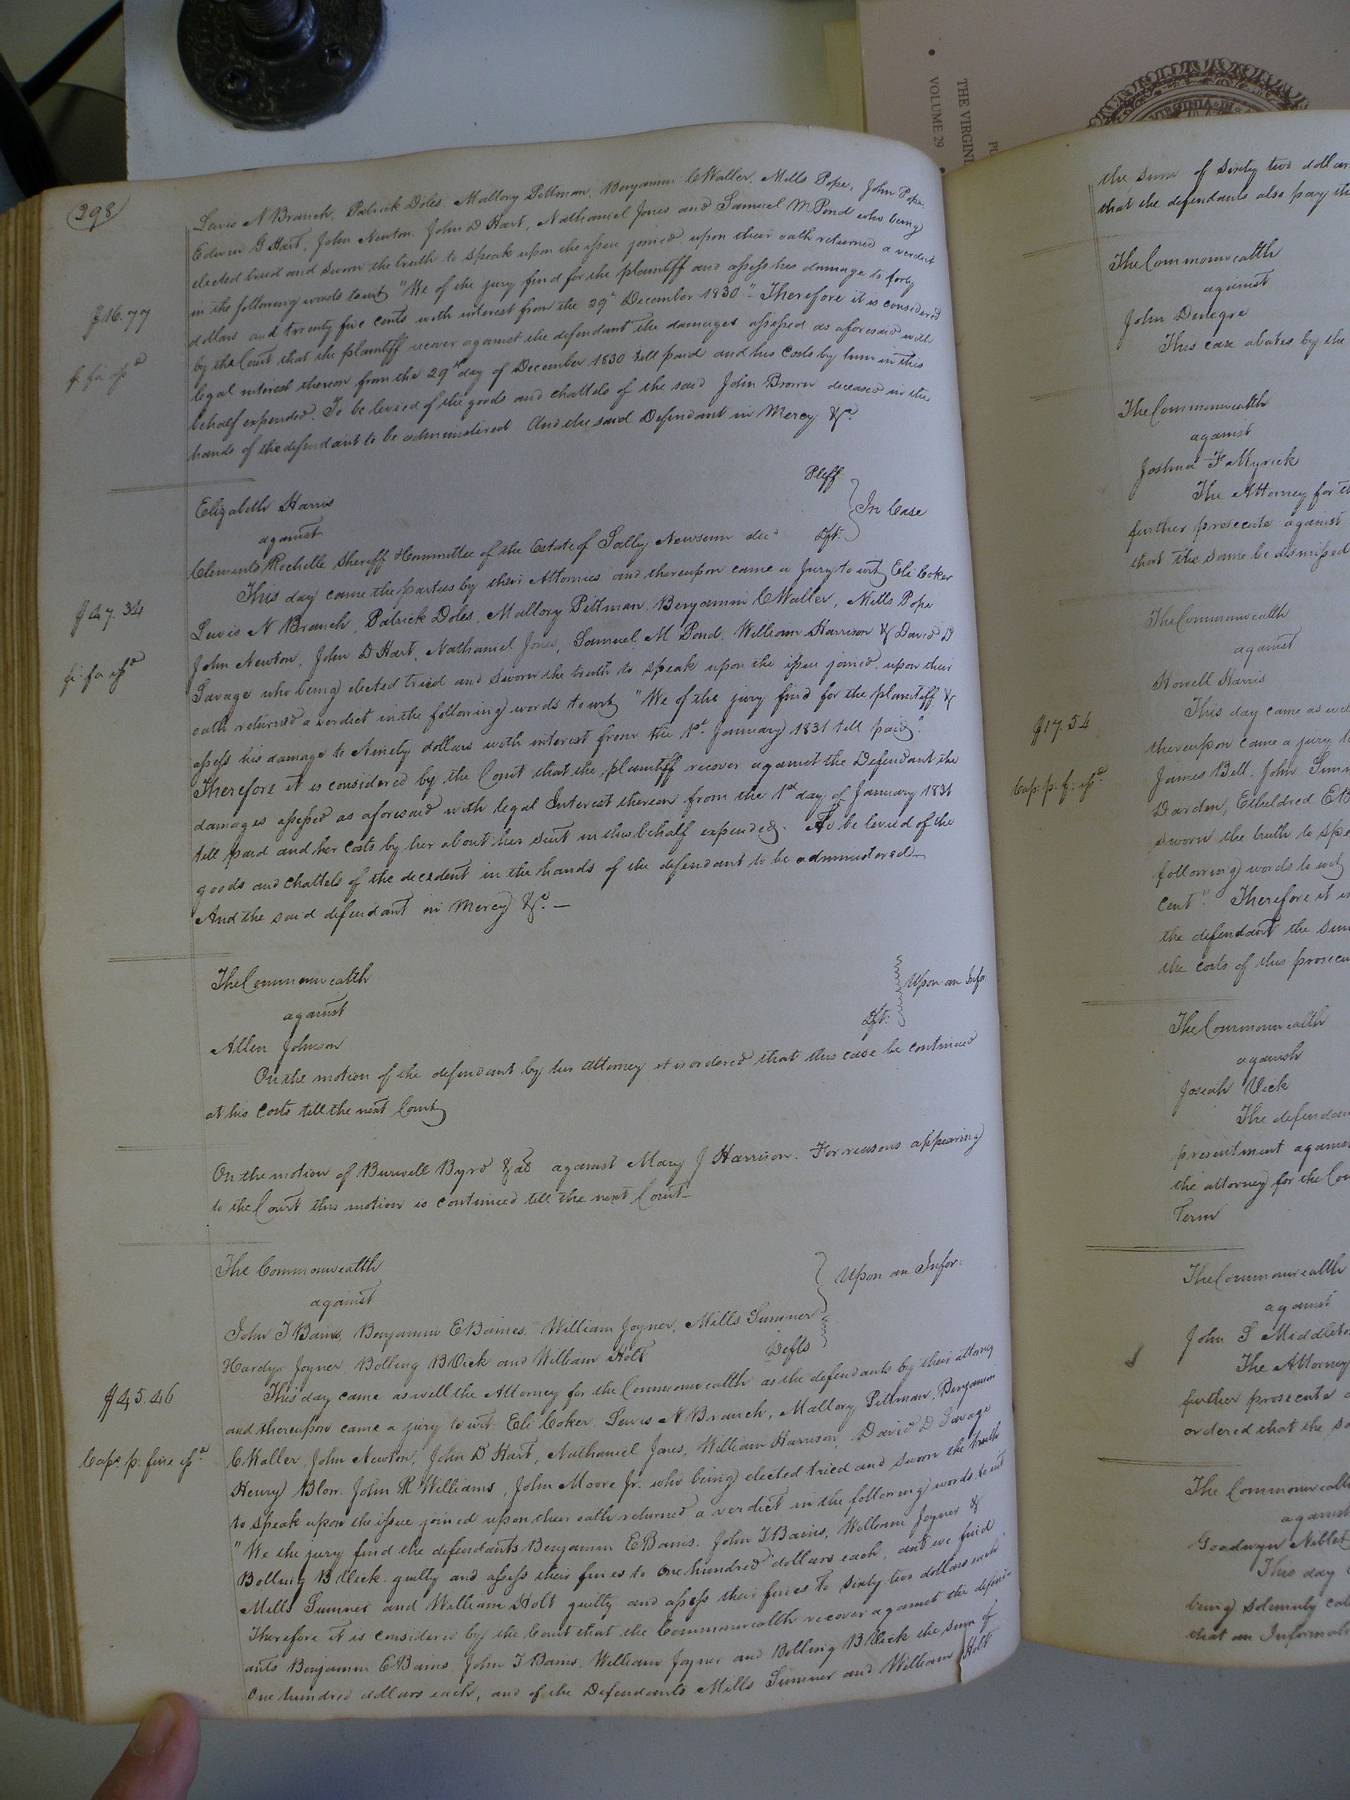 298
Lewis N Branch, Patrick Doles, Mallory Pittman, Benjamin C Waller, Mills Pope, John Pope
Edwin G Hart, John Newton, John D Hart, Nathaniel Jones and Samuel M Pond who being
elected tried and sworn the truth to speak upon the issue joined upon their oath returned a verdict
in the following words to wit "We of the jury find for the plaintiff and assess his damage to forty
dollars and twenty five cents with interest from the 29th December 1830" Therefore it is considered
by the Court that the plaintiff recover against the defendant the damages assessed as aforesaid with
legal interest thereon from the 29th day of December 1830 till paid and his Costs by him in this
behalf expended. To be levied of the goods and chattels of the said John Brown deceased in the
hands of the defendant to be administered And the said Defendant in Mercy &c.
$16.77
fi: fa: issd
Elizabeth Harris Pltff
against In Case
Clements Rochelle Sheriff & Committee of the Estate of Sally Newsum decd Dft:
This day came the parties by their Attornies and thereupon came a Jury to wit Eli Coker
Lewis N Branch, Patrick Doles, Mallory Pittman, Benjamin C Waller, Mills Pope
John Newton, John D Hart, Nathaniel Jones, Samuel M Pond, William Harrison & David D
Savage who being elected tried and sworn the truth to speak upon the issue joined upon their
oath returned a verdict in the following words to wit "We of the jury find for the plaintiff &
assess his damage to Ninety dollars with interest from the 1st January 1831 till paid"
Therefore it is considered by the Court that the plaintiff recover against the Defendant the
damages assessed as aforesaid with legal Interest thereon from the 1st day of January 1831
till paid and her Costs by her about her suit in this behalf expended. To be levied of the
goods and chattels of the decedent in the hands of the defendant to be administered
And the said defendant in Mercy &c. —
$47.34
fi: fa issd
The Commonwealth
against Upon an Info
Allen Johnson Dft:
On the motion of the defendant by his attorney it is ordered that this case be continued
at his Costs till the next Court
On the motion of Burwell Byrd &als against Mary J Harrison. For reasons appearing
to the Court this motion is continued till the next Court—
The Commonwealth
against Upon an Infor:
John T Bains, Benjamin E Baines, William Joyner, Mills Sumner
Hardy Joyner Bolling B Vick and William Holt Defts
This day came as well the Attorney for the Commonwealth as the defendants by their attorney
and thereupon came a jury to wit: Eli Coker, Lewis N Branch, Mallory Pittman, Benjamin
C Waller, John Newton, John D Hart, Nathaniel Jones, William Harrison, David D Savage
Henry Blow, John R Williams, John Moore Jr. who being elected tried and sworn the truth
to speak upon the issue joined upon their oath returned a verdict in the following words to wit
"We the jury find the defendants Benjamin E Bains, John T Bains, William Joyner &
Bolling B Vick guilty and assess their fines to One hundred dollars each, and we find
Mills Sumner and William Holt guilty and assess their fines to Sixty two dollars each
Therefore it is considered by the Court that the Commonwealth recover against the defend-
ants Benjamin E Bains John T Bains, William Joyner and Bolling B Vick the sum of
One hundred dollars each, and of the Defendants Mills Sumner and William Holt
$45.46
Cap: p: fine issd
the sum of Sixty two dollars
that the defendants also pay the
The Commonwealth
against
John
This case abates by the
The Commonwealth
against
Joshua F Myrick
The Attorney for th
further prosecute against
that the same be dismissed
The Commonwealth
against
Howell Harris
This day came as wel
thereupon came a jury t
James Bell, John
Darden, Etheldred
sworn the truth to spe
following words to wit
Cent". Therefore it is
the defendant the sum
the costs of this prosecu
$17.54
Cap: p: f: issd
The Commonwealth
against
Josiah Vick
The defendan
presentment agains
the attorney for the Co
Term
The Commonwealth
against
John S Middleto
The Attorney
further prosecute
ordered that the sa
The Commonwealth
against
Goodwyn
This day
being solemnly cal
that an Informati
THE VIRGIN
VOLUME 29
VIRGINIA